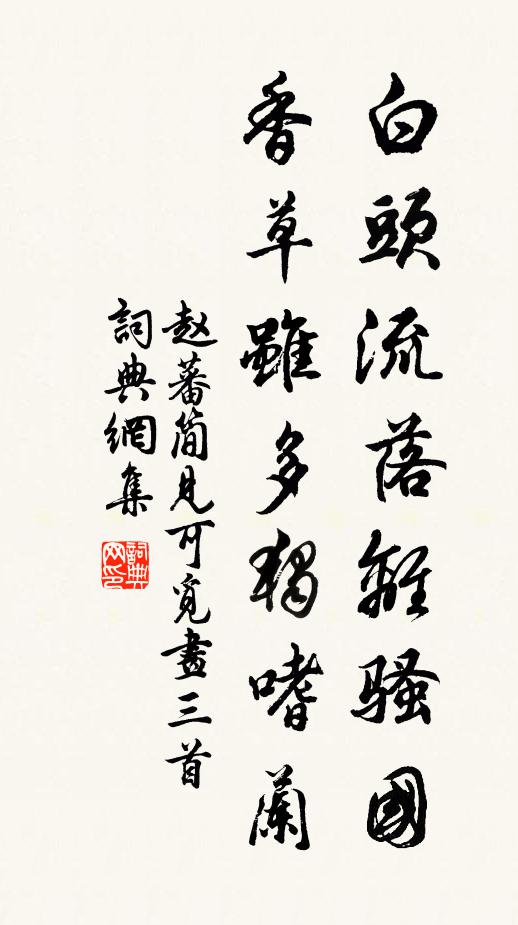 白頭流落離騷國
香草雖多獨嗜蘭
赵蕃簡見可覓畫三首
詞典網集
詞典网印